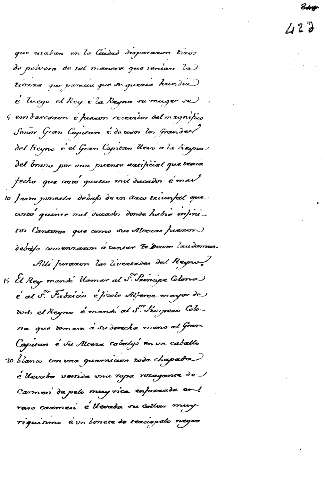 423
que estaban en la Ciudad dispararon tiros
de polvora de tal manera que temian la
tierra que parecia que se queria hundir
é luego el Rey é la Reyna su muger se
5 embarcaron é fueron recevidos del magnifico
Señor Gran Capitan é de todos los Grandes
del Reyno é el Gran Capitan llevo a la Reyna
del brazo por una puente artificial que estaba
fecha que costó mil ducados é mas
10 fueron debajo de un Arco triunfal que
costó quince mil ducados donde hubo
Cantores que como sus Altezas fueron
debajo comenzaron á cantar Te Deum laudamus
Alli juraron las livertades del Reyno
15 El Rey mandó llamar al Sr. Principe Colona
é al Sr. Fabricio é fizolo Alferez mayor de
todo el Reyno é mandó al Sr. Prospero Colo-
na que tomara á su derecha mano al Gran
Capitan é Su Alteza cabalgó en un caballo
20 blanco con una guarnicion toda chapada
é llevaba vestida una ropa rozagante de
Carmesi de pelo muy rica enforrada en
raso carmesi é llevaba su collar muy
riquisimo é un bonete de terciopelo negro